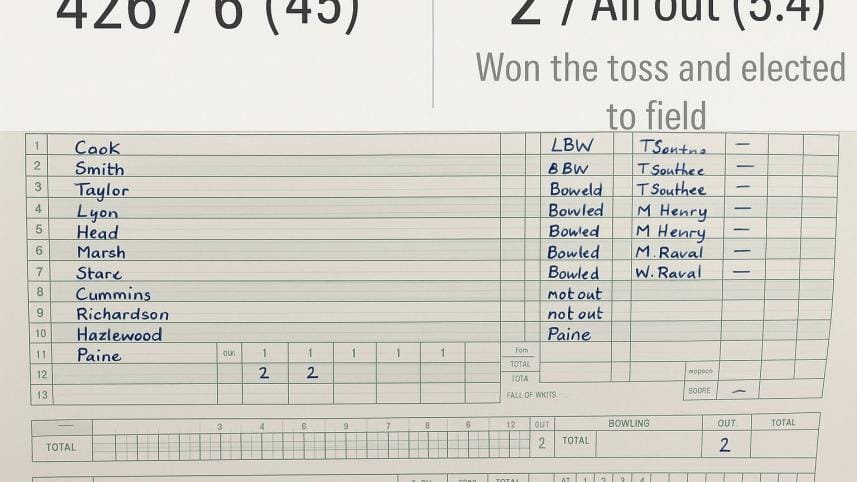 426 / 6 (45)
2 / All out (5.4)
Won the toss and elected
to field
1 Cook LBW T —
2 Smith BBW T Southee —
3 Taylor Boweld T Southee —
4 Lyon Bowled M Henry —
5 Head Bowled M Henry —
6 Marsh Bowled M. Raval —
7 Starc Bowled W. Raval —
8 Cummins not out
9 Richardson not out
10 Hazlewood Paine
11 Paine our 1 1 1 1 1 Fom
12 2 2 TOTAL mopoon
13 TOTA
FALL OF WKITS SOORE —
— 3 4 6 9 7 8 6 12 GUT BOWLING OUT. TOTAL
TOTAL 2 TOTAL 2
TOTAL AT 1 2 3 4